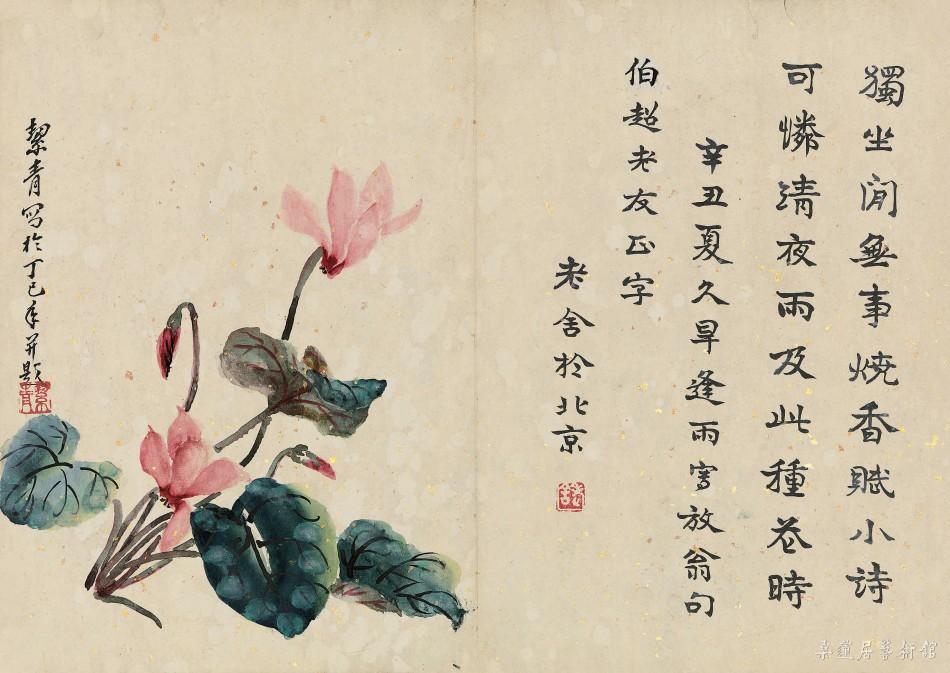 獨坐閒無事燒香賦小詩
可憐清夜雨及此種花時
辛丑夏久旱逢雨寫放翁句
伯超老友正字
老舍於北京
老舍
絜青写於丁巳年并題
絜青
桑蓮居藝術館